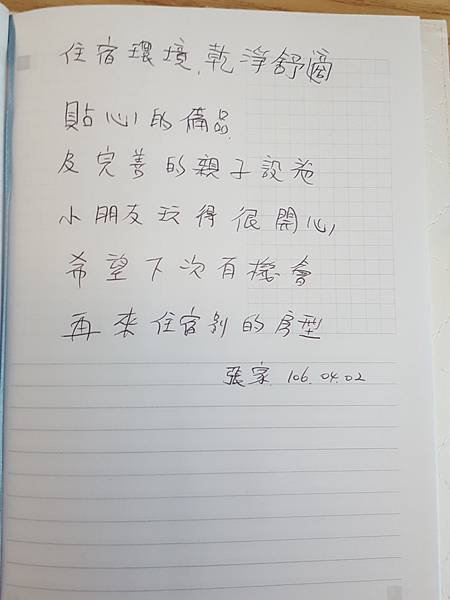 住宿環境,乾淨舒適
貼心的備品
及完善的親子設施
小朋友玩得很開心
希望下次有機會
再來住宿別的房型
張家 106.04.02